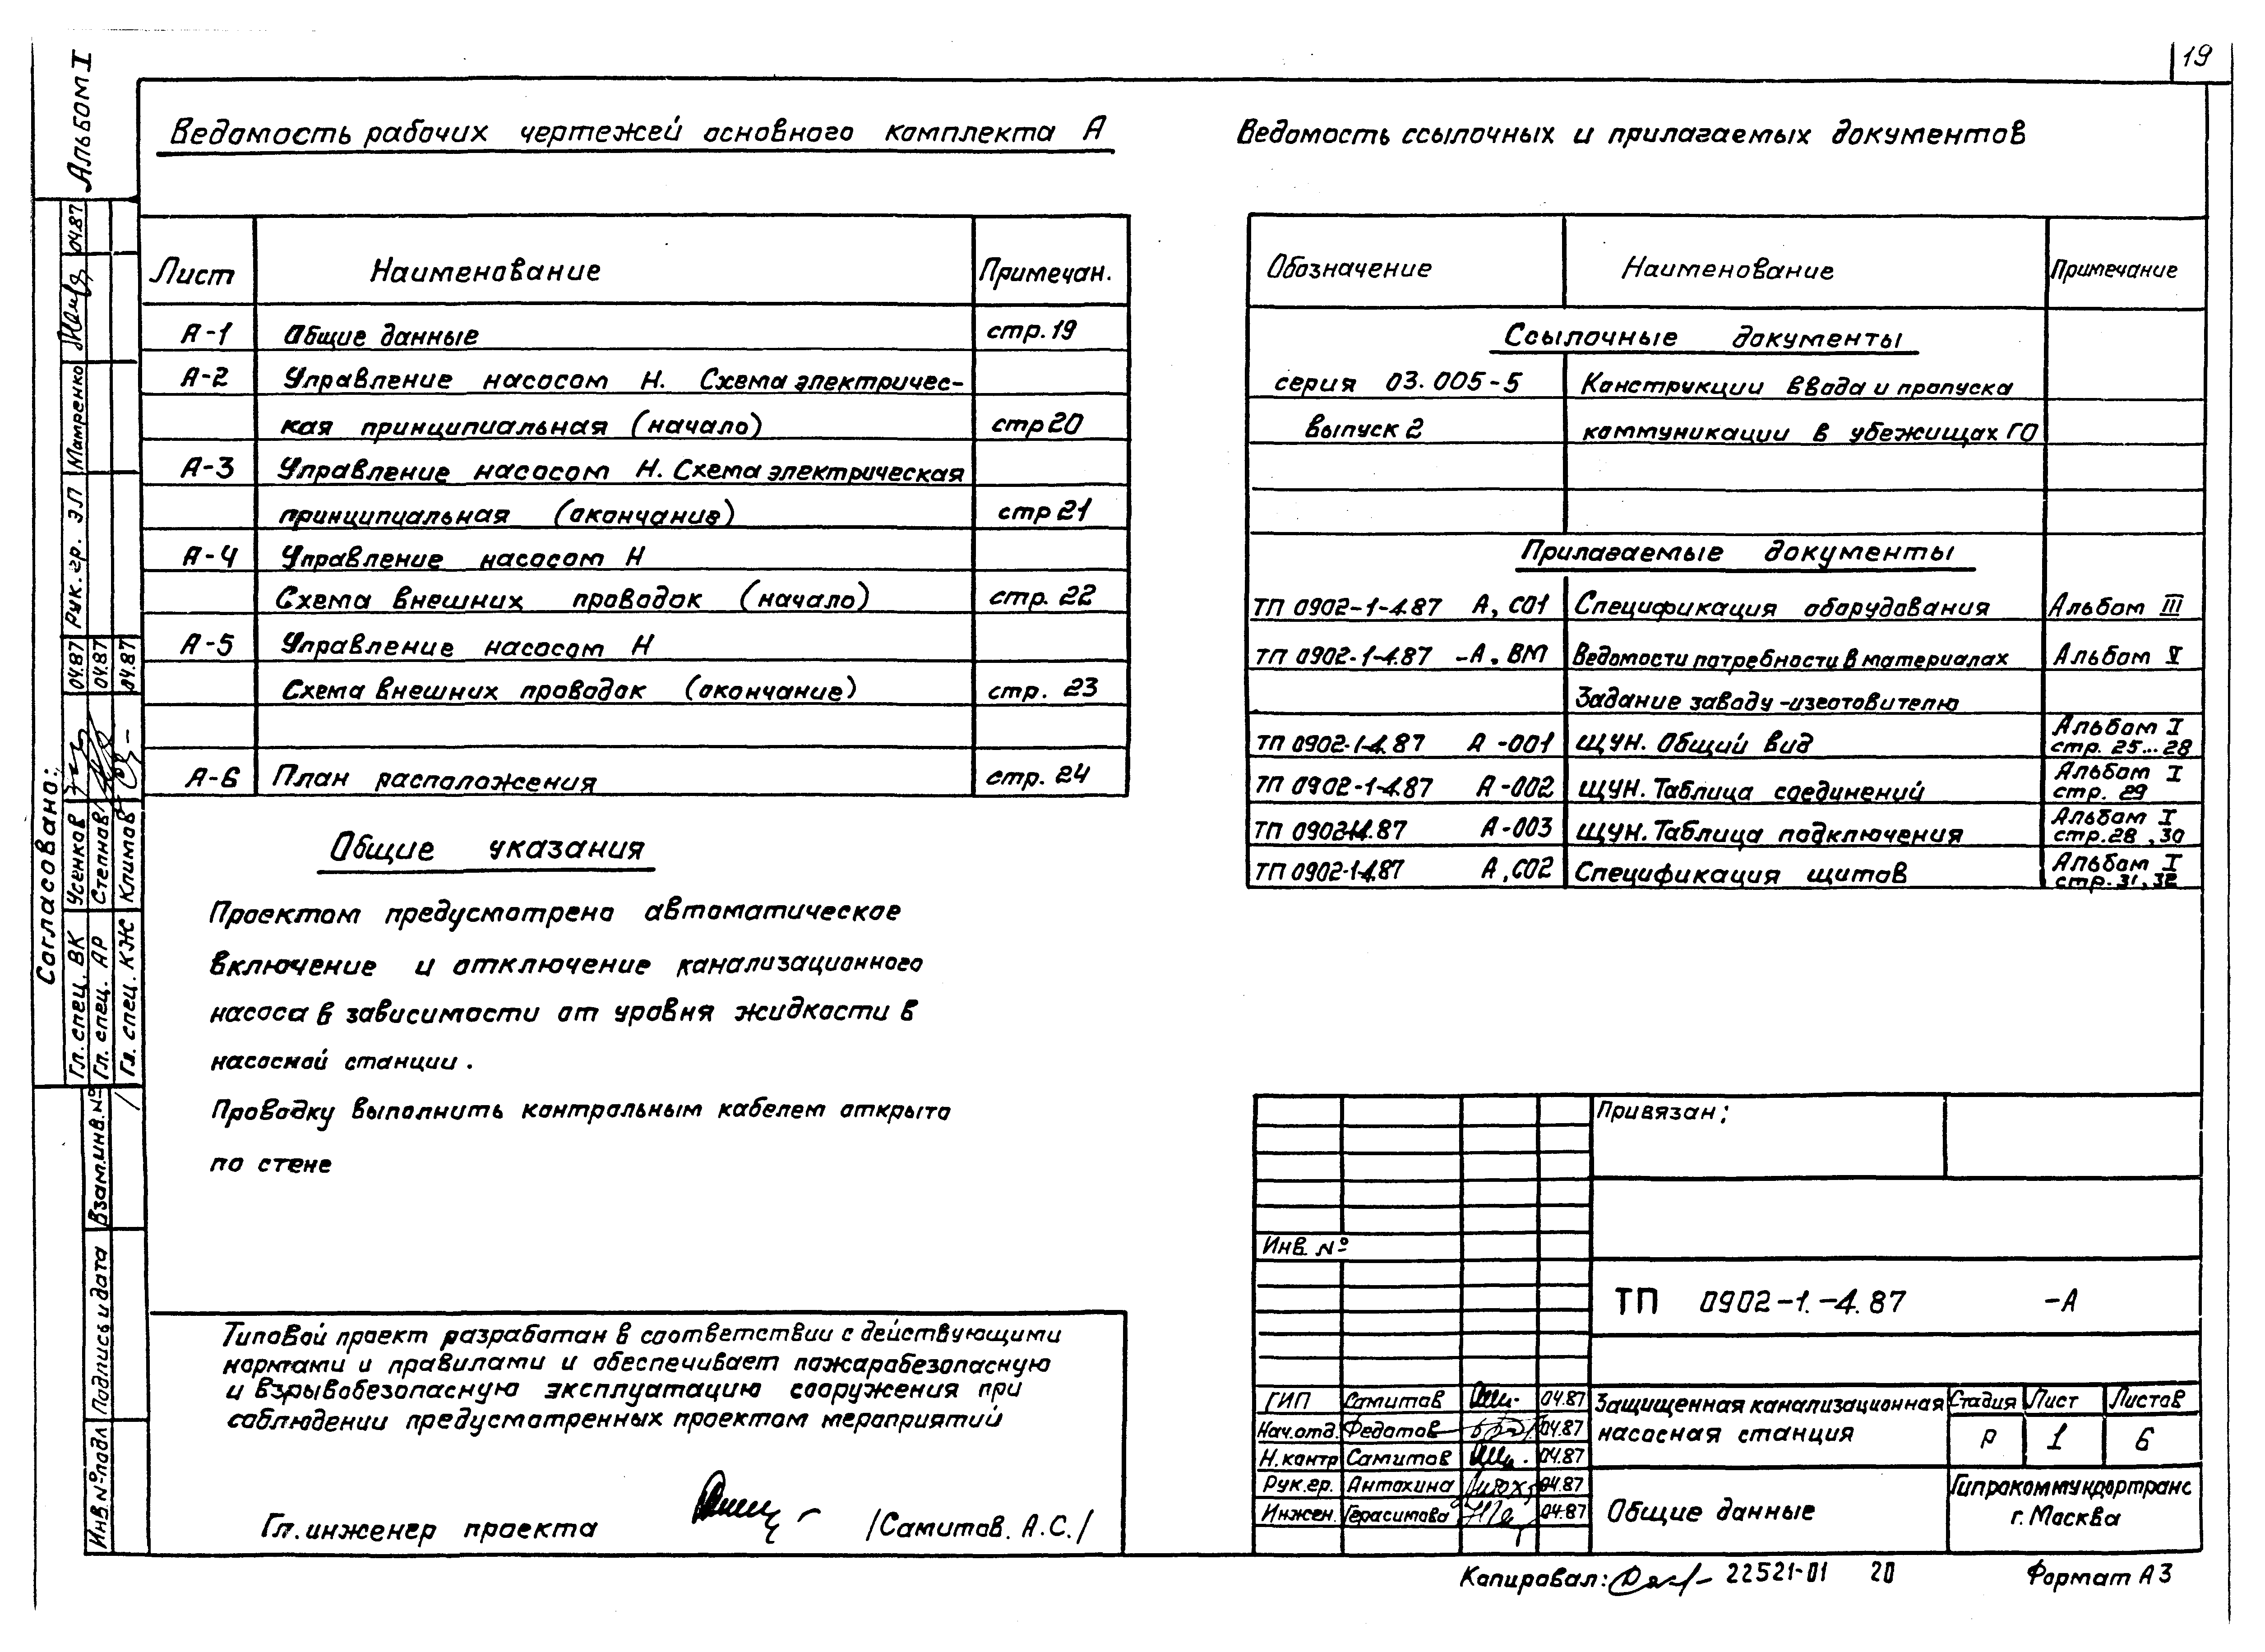 19
Альбом I
Ведомость рабочих чертежей основного комплекта А
Лист Наименование Примечан.
А-1 Общие данные стр.19
А-2 Управление насосом Н. Схема электричес-
кая принципиальная (начало) стр 20
А-3 Управление насосом Н. Схема электрическая
принципиальная (окончание) стр 21
А-4 Управление насосом Н
Схема внешних проводок (начало) стр. 22
А-5 Управление насосом Н
Схема внешних проводок (окончание) стр. 23
А-6 План расположения стр. 24
Общие указания
Проектом предусмотрено автоматическое
включение и отключение канализационного
насоса в зависимости от уровня жидкости в
насосной станции.
Проводку выполнить контрольным кабелем открыто
по стене
Типовой проект разработан в соответствии с действующими
нормами и правилами и обеспечивает пожаробезопасную
и взрывобезопасную эксплуатацию сооружения при
соблюдении предусмотренных проектом мероприятий
Гл. инженер проекта /Самитов. А.С./
Ведомость ссылочных и прилагаемых документов
Обозначение Наименование Примечание
Ссылочные документы
серия 03.005-5 Конструкции ввода и пропуска
выпуск 2 коммуникации в убежищах ГО
Прилагаемые документы
ТП 0902-1-4.87 А, СО1 Спецификация оборудования Альбом III
ТП 0902-1-4.87 -А. ВМ Ведомости потребности в материалах Альбом V
Задание заводу-изготовителю
ТП 0902-1-4.87 А-001 ЩУН. Общий вид Альбом I
стр. 25...28
ТП 0902-1-4.87 А-002 ЩУН. Таблица соединений Альбом I
стр. 29
ТП 0902-1-4.87 А-003 ЩУН. Таблица подключения Альбом I
стр.28, 30
ТП 0902-1-4.87 А, СО2 Спецификация щитов Альбом I
стр. 31, 32
Привязан:
Инв. №
ТП 0902-1.-4.87 -А
ГИП Самитов 04.87
Нач.отд. Федотов 04.87
Н.контр Самитов 04.87
Рук.гр. Антохина 04.87
Инжен. Герасимова 04.87
Защищенная канализационная
насосная станция
Стадия Лист Листов
Р 1 6
Общие данные
Гипрокоммундортранс
г. Москва
Копировал: 22521-01 20 Формат А3
Согласовано:
Гл. спец. ВК Усенков 04.87 Рук. гр. ЭП Матренко 04.87
Гл. спец. АР Степнов 04.87
Гл. спец. КЖ Климов 04.87
Взам.инв.№
Подпись и дата
Инв.№подл